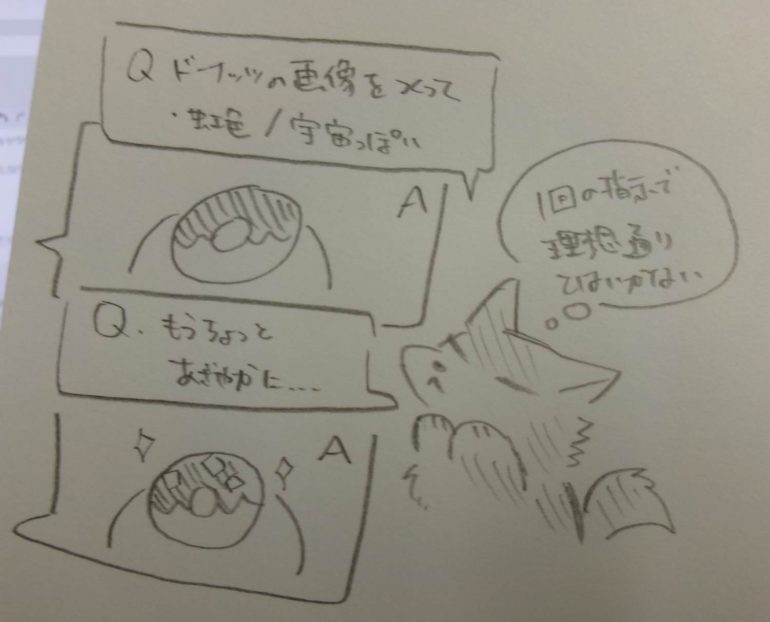 Q ドーナッツの画像をつくって
・虹色／宇宙っぽい
A
Q. もうちょっと
あざやかに...
A
1回の指示で
理想通り
とはいかない